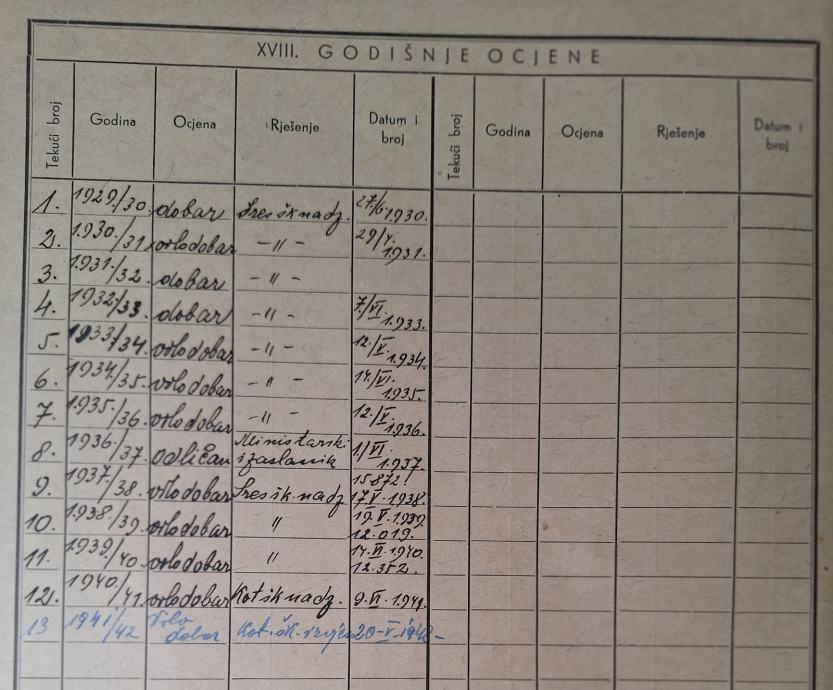 XVIII. GODIŠNJE OCJENE
Tekući broj Godina Ocjena Rješenje Datum i broj Tekući broj Godina Ocjena Rješenje Datum i broj
1. 1929/30. dobar Sres šk nadz. 27/6 1930.
2. 1930./31. vrlo dobar - " - 29/V. 1931.
3. 1931./32. dobar - " -
4. 1932/33. dobar - " - 7./VI. 1933.
5. 1933/34. vrlo dobar - " - 12./V. 1934.
6. 1934/35. vrlo dobar - " - 14./VI. 1935.
7. 1935./36. vrlo dobar - " - 12./V. 1936.
8. 1936./37. odličan Ministarski izaslanik 1./VI. 1937.
9. 1937./38. vrlo dobar Sres šk. nadz 15872. 17.V.1938.
10. 1938./39. vrlo dobar " 19.V.1939. 12.019.
11. 1939./40. vrlo dobar " 14.VI.1940. 12.352.
12. 1940./41. vrlo dobar Kot šk nadz. 9.VI.1941.
13 1941/42 Vrlo dobar Kot. šk. 20-V-1942-